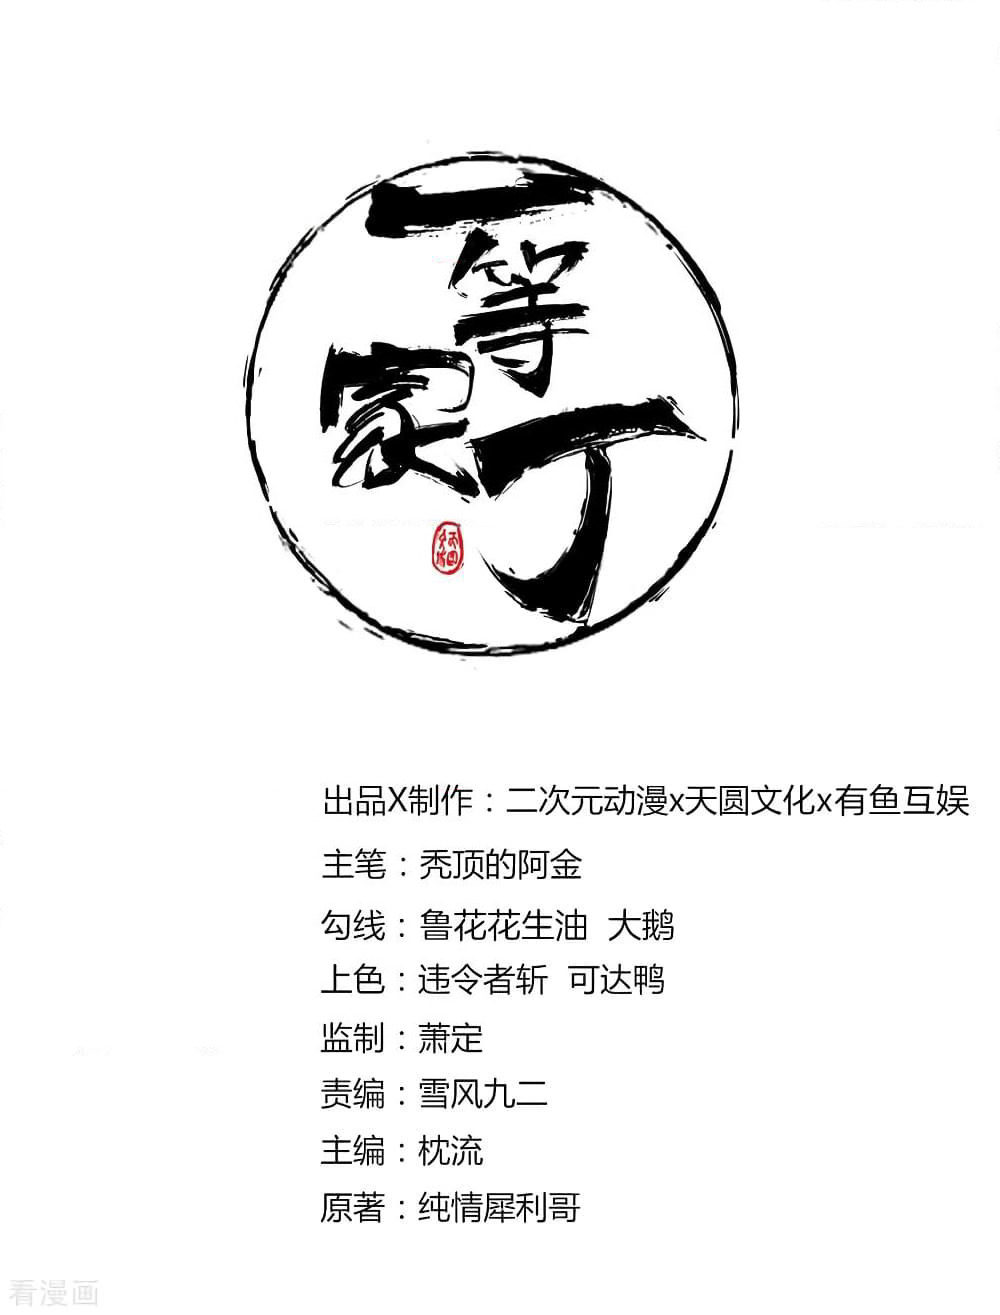 一等家丁
出品X制作：二次元动漫x天圆文化x有鱼互娱
主笔：秃顶的阿金
勾线：鲁花花生油 大鹅
上色：违令者斩 可达鸭
监制：萧定
责编：雪风九二
主编：枕流
原著：纯情犀利哥
看漫画